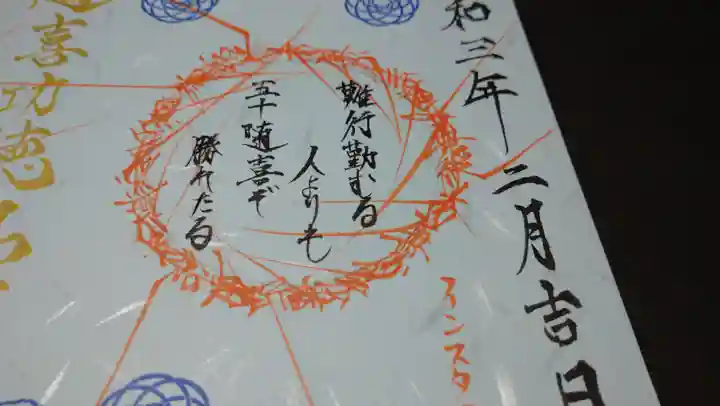 和三年二月吉日
インスタ
難行勤むる
人よりも
五十随喜ぞ
勝れたる
随喜功徳